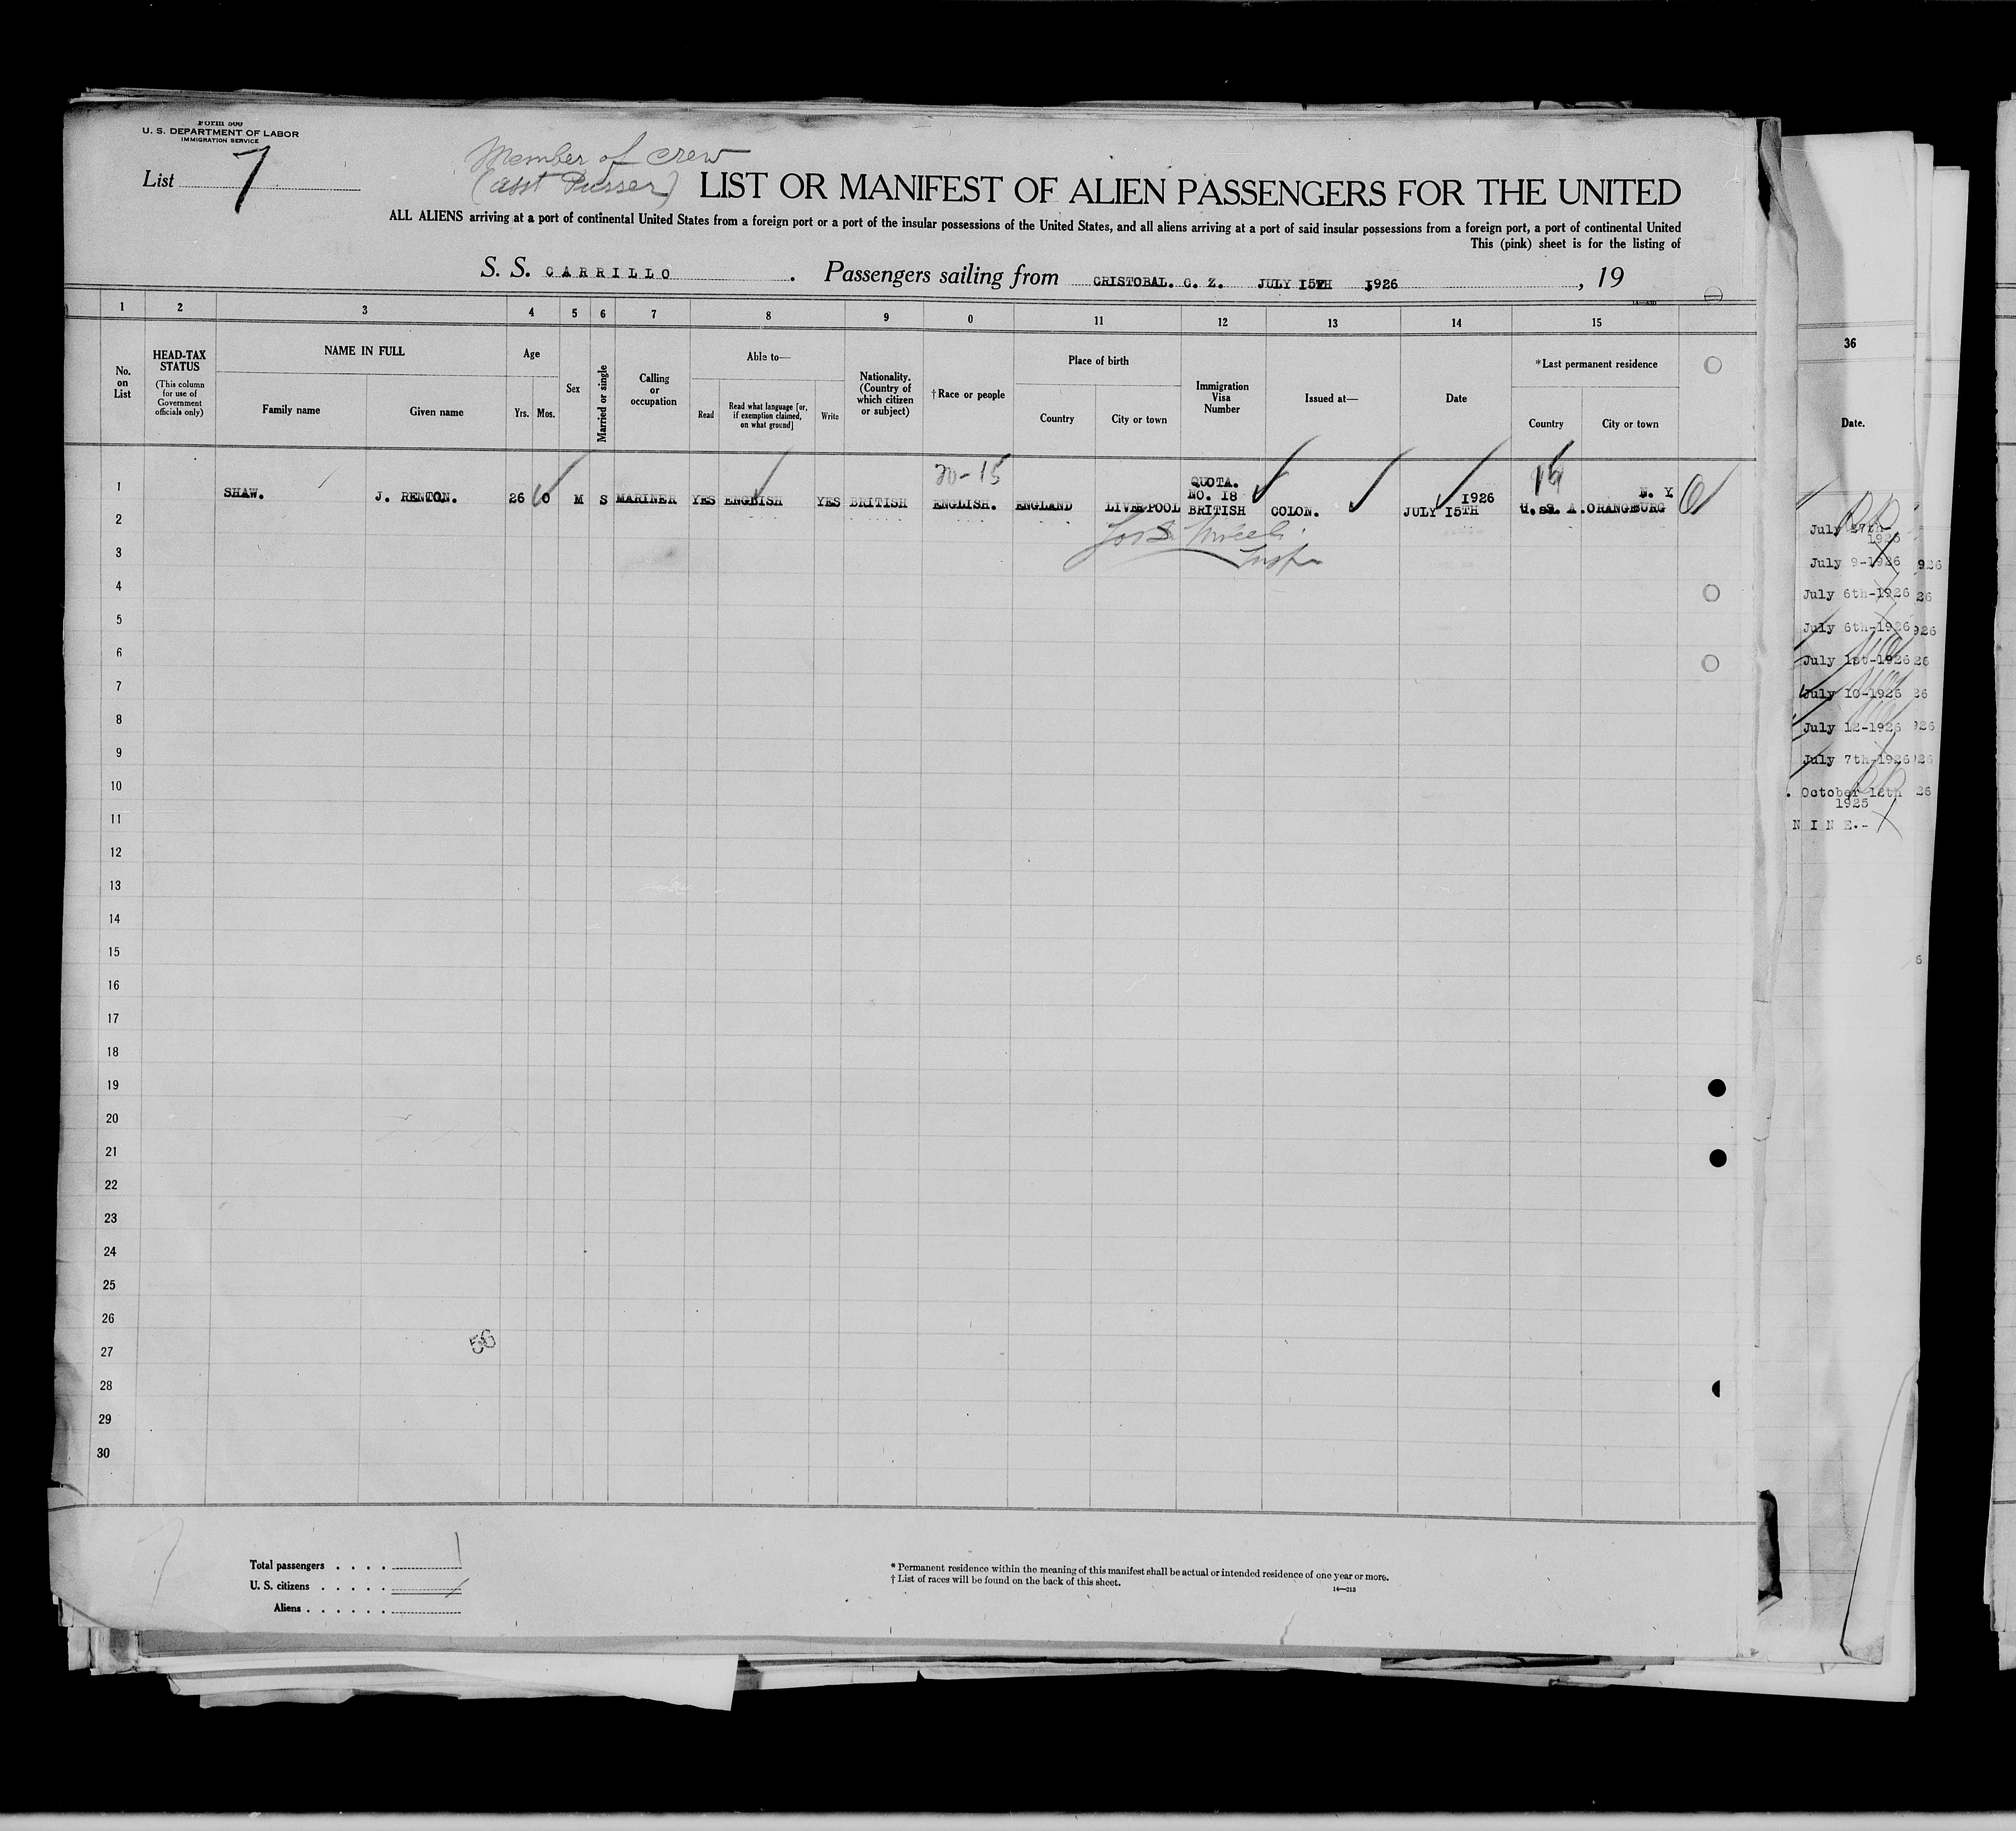 Form 500
U. S. DEPARTMENT OF LABOR
IMMIGRATION SERVICE
List 7
Member of crew
(asst Purser)
LIST OR MANIFEST OF ALIEN PASSENGERS FOR THE UNITED
ALL ALIENS arriving at a port of continental United States from a foreign port or a port of the insular possessions of the United States, and all aliens arriving at a port of said insular possessions from a foreign port, a port of continental United
This (pink) sheet is for the listing of
S. S. CARRILLO. Passengers sailing from CRISTOBAL. C. Z. JULY 15TH 1926, 19
1 2 3 4 5 6 7 8 9 0 11 12 13 14 15
No. on List
HEAD-TAX STATUS
(This column for use of Government officials only)
NAME IN FULL
Family name
Given name
Age
Yrs.
Mos.
Sex
Married or single
Calling or occupation
Able to—
Read
Read what language [or, if exemption claimed, on what ground]
Write
Nationality. (Country of which citizen or subject)
†Race or people
Place of birth
Country
City or town
Immigration Visa Number
Issued at—
Date
*Last permanent residence
Country
City or town
20-15
1 SHAW. J. RENTON. 26 0 M S MARINER YES ENGLISH YES BRITISH ENGLISH. ENGLAND LIVERPOOL QUOTA. NO. 18 BRITISH COLON. JULY 15TH 1926 U.S. A. ORANGBURG N. Y.
2
3
4
5
6
7
8
9
10
11
12
13
14
15
16
17
18
19
20
21
22
23
24
25
26
27
28
29
30
56
Total passengers . . . . 1
U. S. citizens . . . . .
Aliens . . . . . .
* Permanent residence within the meaning of this manifest shall be actual or intended residence of one year or more.
† List of races will be found on the back of this sheet.
14—313
36
Date.
July 27th-
1926
July 9-1926
July 6th-1926
July 6th-1926
July 1st-1926
July 10-1926
July 12-1926
July 7th-1926
October 12th
1925
N I N E.-